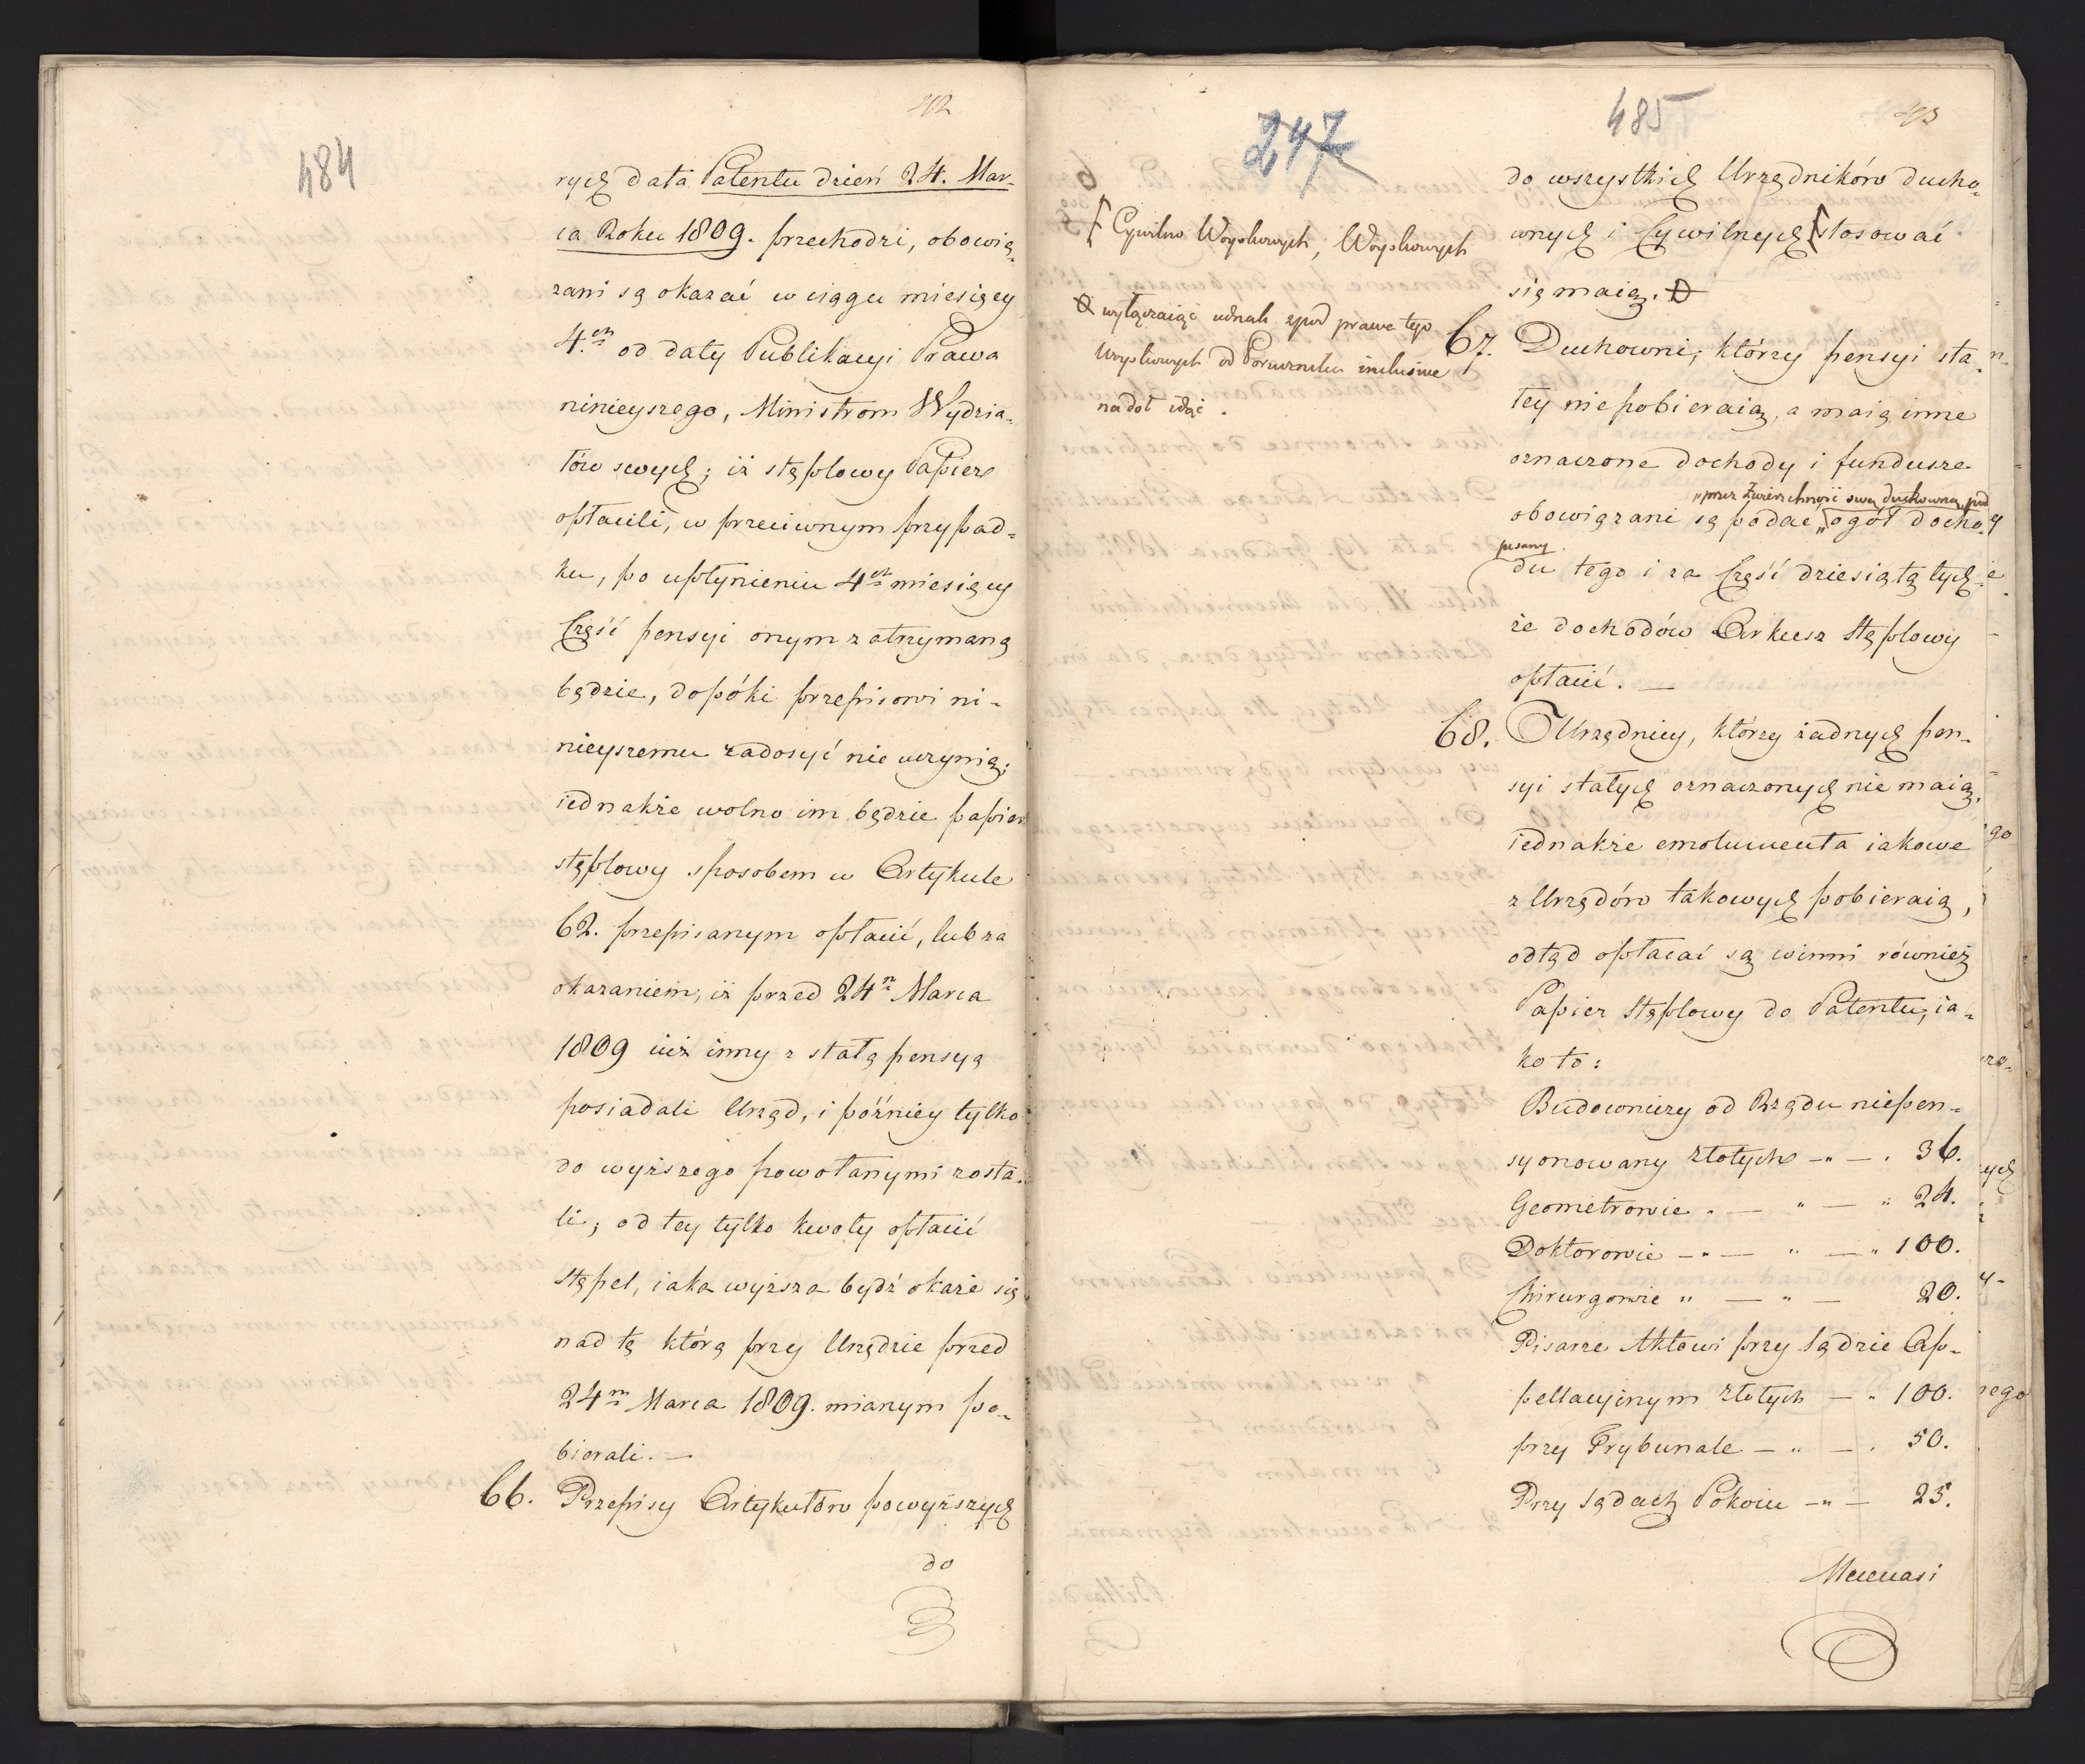 42
484
rych data Patentu dzień 24. Mar-
ca Roku 1809. przechodzi, obowią-
zani są okazać w ciągu miesięcy
4.ch od daty Publikacyi Prawa
ninieyszego, Ministrom Wydzia-
łów swych; iż stęplowy Papier
opłacili, w przeciwnym przypad-
ku, po upłynieniu 4ch miesięcy
Część pensyi onym zatrzymaną
będzie, dopóki przepisowi ni-
nieyszemu zadosyć nie uczynią;
iednakże wolno im będzie papier
stęplowy sposobem w Artykule
62. przepisanym opłacić, lub za
okazaniem, iż przed 24m Marca
1809 iuż inny z stałą pensyą
posiadali Urząd, i późniey tylko
do wyższego powołanymi zosta-
li; od tey tylko kwoty opłacić
Stępel, iaka wyższa bydź okaże się
nad tę którą przy Urzędzie przed
24m Marca 1809. mianym po-
bierali. —
66. Przepisy Artykułów powyższych
do
485
247
do wszystkich Urzędników ducho-
wnych i Cywilnych stosować
się maią.
Cywilno Woyskowych, Woyskowych
wyłączaiąc iednak z pod prawa tego
Woyskowych od Porucznika inclusive
na dół idąc.
67. Duchowni, którzy pensyi sta-
łey nie pobieraią, a maią inne
oznaczone dochody i fundusze
„przez Zwierzchność swą duchowną pod
obowiązani są podać „ogół docho-
pisany
du tego i za Część dziesiątą tych-
że dochodów Arkusz Stęplowy
opłacić. —
68. Urzędnicy, którzy żadnych pen-
syi stałych oznaczonych nie maią,
iednakże emolumenta iakowe
z Urzędów takowych pobieraią,
odtąd opłacać są winni również
Papier Stęplowy do Patentu, ia-
ko to:
Budowniczy od Rządu niepen-
syonowany złotych —„— . 36.
Geometrowie „ — „ — „ 24.
Doktorowie —„— „ —„ 100.
Chirurgowie „ — „ — 20.
Pisarze Aktowi przy Sądzie Ap-
pellacyinym złotych — „ 100.
przy Trybunale — „ — . 50.
Przy Sądach Pokoiu —„— 25.
Mecenasi